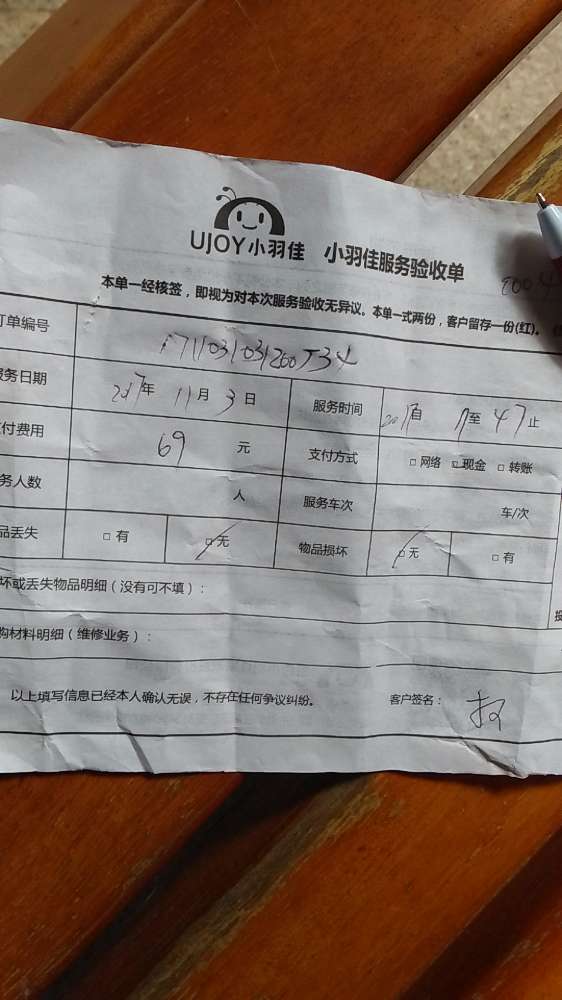 UJOY小羽佳 小羽佳服务验收单
本单一经核签，即视为对本次服务验收无异议。本单一式两份，客户留存一份(红)。
订单编号
服务日期 2017年 11月 3日 服务时间 自 至 47 止
付费用 69 元 支付方式 □ 网络 □ 现金 □ 转账
务人数 人 服务车次 车/次
品丢失 □ 有 □ 无 物品损坏 □ 无 □ 有
坏或丢失物品明细（没有可不填）：
购材料明细（维修业务）：
以上填写信息已经本人确认无误，不存在任何争议纠纷。 客户签名：